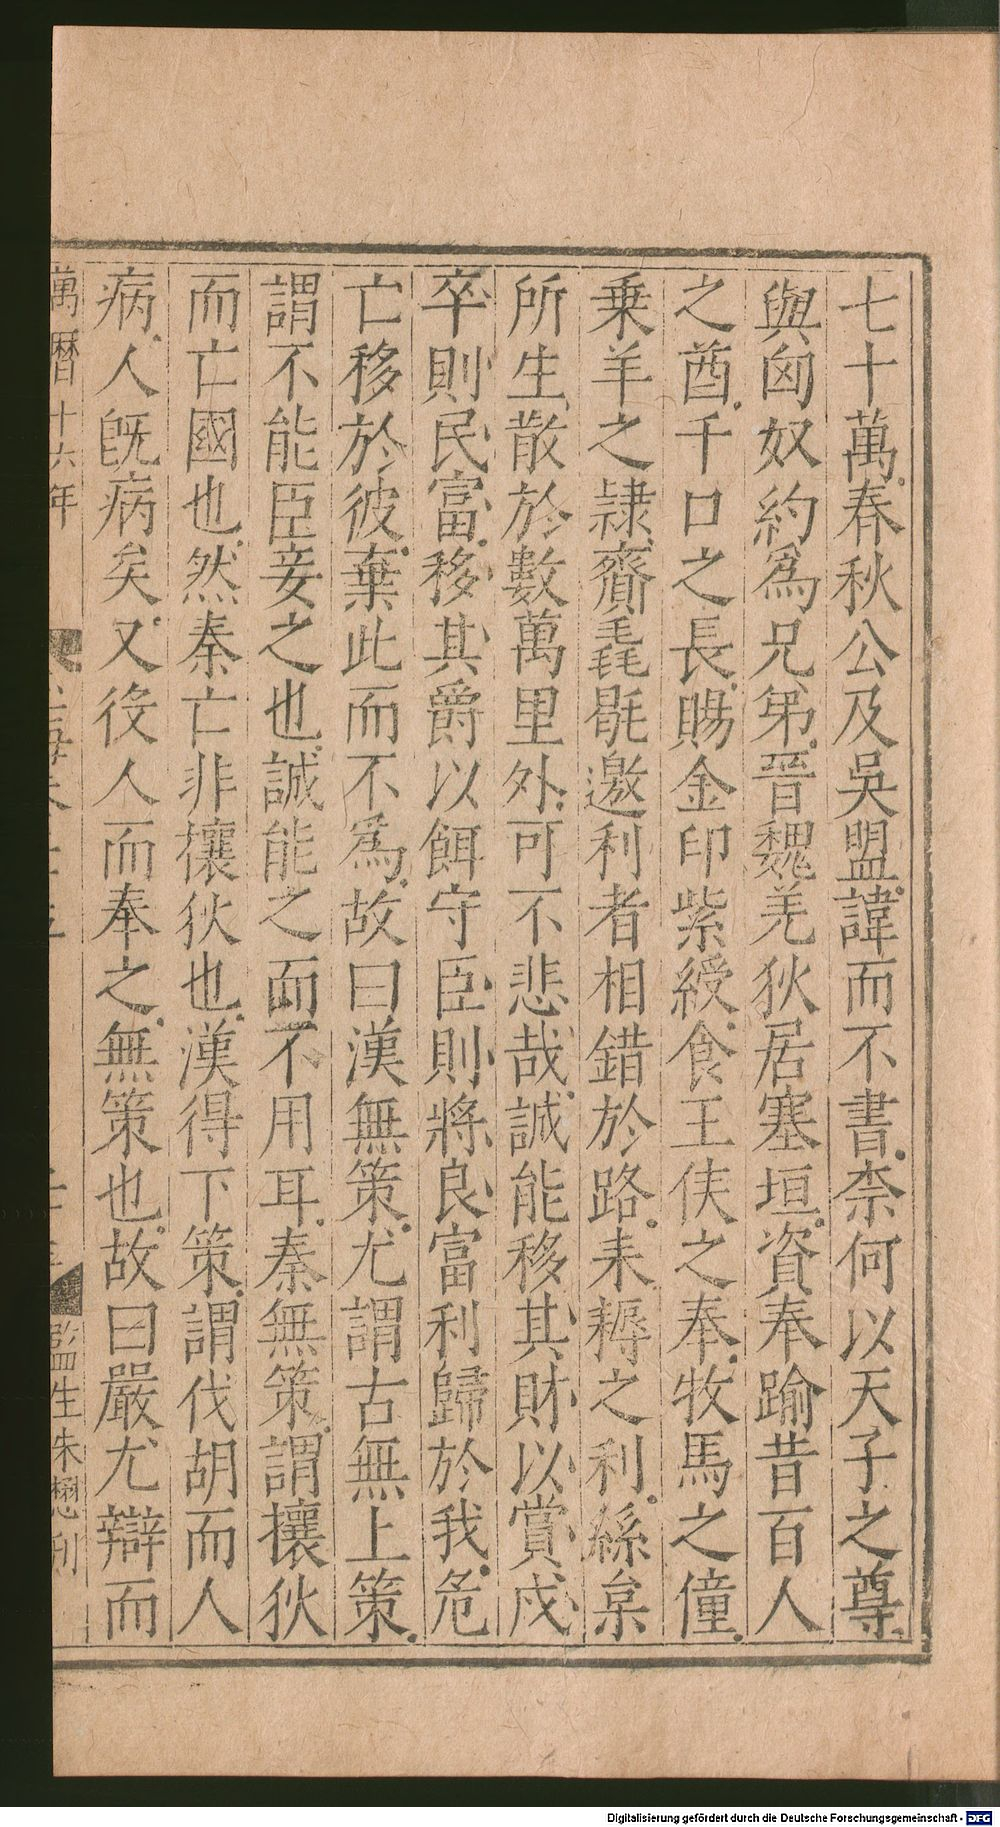 七十萬春秋公及吳盟諱而不書柰何以天子之尊
與匈奴約爲兄弟晉魏羌狄居塞垣資奉踰昔百人
之酋千口之長賜金印紫綬食王侯之奉牧馬之僮
乗羊之隷齎毳毼邀利者相錯於路耒耨之利絲枲
所生散於數萬里外可不悲哉誠能移其財以賞戍
卒則民富移其爵以餌守臣則將良富利歸於我危
亡移於彼棄此而不爲故曰漢無策尤謂古無上策
謂不能臣妾之也誠能之而不用耳秦無策謂攘狄
而亡國也然秦亡非攘狄也漢得下策謂伐胡而人
病人旣病矣又役人而奉之無策也故曰嚴尤辯而
萬曆十六年
監生朱懋刊
Digitalisierung gefördert durch die Deutsche Forschungsgemeinschaft - DFG